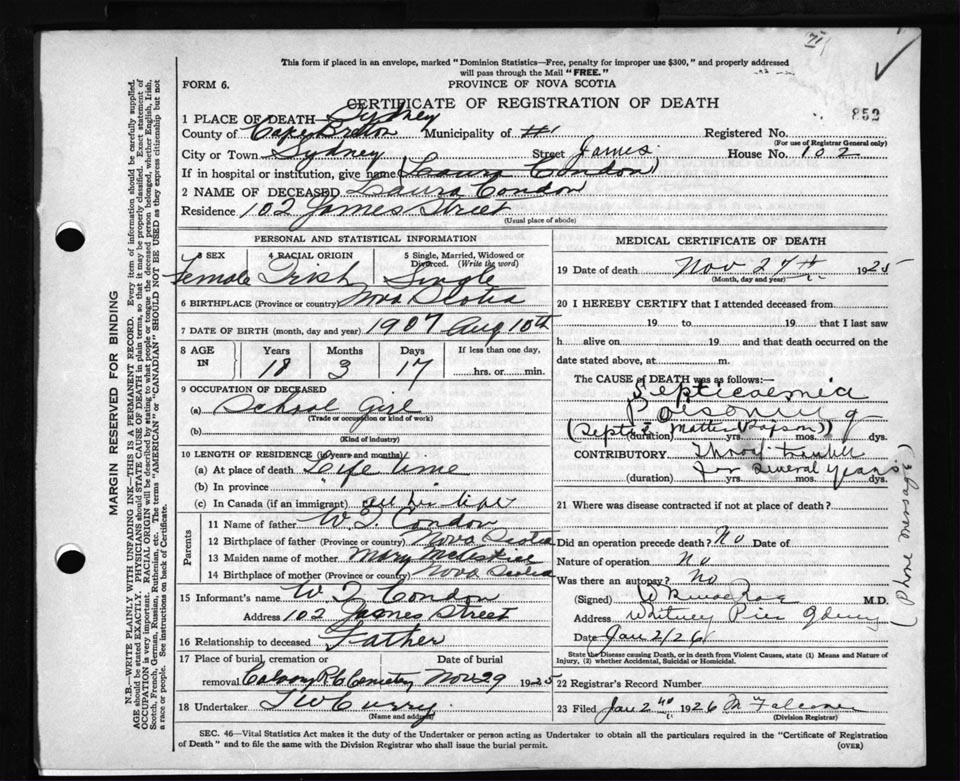 71
This form if placed in an envelope, marked "Dominion Statistics—Free, penalty for improper use $300," and properly addressed
will pass through the Mail "FREE."
FORM 6.
PROVINCE OF NOVA SCOTIA
CERTIFICATE OF REGISTRATION OF DEATH
852
1 PLACE OF DEATH— Sydney
County of Cape Breton Municipality of #1 Registered No.
(For use of Registrar General only)
City or Town Sydney Street James House No. 102
If in hospital or institution, give name (Laura Condon)
2 NAME OF DECEASED Laura Condon
Residence 102 James Street
(Usual place of abode)
PERSONAL AND STATISTICAL INFORMATION
3 SEX 4 RACIAL ORIGIN 5 Single, Married, Widowed or Divorced. (Write the word)
Female Irish Single
6 BIRTHPLACE (Province or country) Nova Scotia
7 DATE OF BIRTH (month, day and year) 1907 Aug 10th
8 AGE IN Years Months Days If less than one day,
18 3 17 hrs. or min.
9 OCCUPATION OF DECEASED
(a) School Girl
(Trade or occupation or kind of work)
(b)
(Kind of industry)
10 LENGTH OF RESIDENCE (in years and months)
(a) At place of death Life time
(b) In province
(c) In Canada (if an immigrant) all her life
Parents
11 Name of father W. J. Condon
12 Birthplace of father (Province or country) Nova Scotia
13 Maiden name of mother Mary
14 Birthplace of mother (Province or country) Nova Scotia
15 Informant's name W J Condon
Address 102 James Street
16 Relationship to deceased Father
17 Place of burial, cremation or removal Date of burial
Cemetery Nov 29 1925
18 Undertaker T W Curry
(Name and address)
MEDICAL CERTIFICATE OF DEATH
19 Date of death Nov 27th 1925
(Month, day and year)
20 I HEREBY CERTIFY that I attended deceased from
19 to 19 that I last saw
h alive on 19 and that death occurred on the
date stated above, at m.
The CAUSE of DEATH was as follows:
Septicaemia
Poisoning
(Septic Matter )
(duration) yrs. mos. dys.
CONTRIBUTORY Throat trouble
for several years
(duration) yrs. mos. dys.
21 Where was disease contracted if not at place of death?
Did an operation precede death? No Date of
Nature of operation No
Was there an autopsy? No
(Signed) M.D.
Address Whitney Pier Sydney
Date Jan 2/26
(Phone message)
State the Disease causing Death, or in death from Violent Causes, state (1) Means and Nature of
Injury, (2) whether Accidental, Suicidal or Homicidal.
22 Registrar's Record Number
23 Filed Jan 2nd 1926 M Falconer
(Division Registrar)
SEC. 46—Vital Statistics Act makes it the duty of the Undertaker or person acting as Undertaker to obtain all the particulars required in the "Certificate of Registration
of Death" and to file the same with the Division Registrar who shall issue the burial permit.
(OVER)
MARGIN RESERVED FOR BINDING
N.B.—WRITE PLAINLY WITH UNFADING INK—THIS IS A PERMANENT RECORD. Every item of information should be carefully supplied.
AGE should be stated EXACTLY. PHYSICIANS should STATE CAUSE OF DEATH in plain terms, so that it may be properly classified. Exact statement of
OCCUPATION is very important. RACIAL ORIGIN will be described by stating to what people or tongue the deceased person belonged, whether English, Irish,
Scotch, French, German, Russian, Ruthenian, etc. The terms "AMERICAN" or "CANADIAN" SHOULD NOT BE USED as they express citizenship but not
a race or people. See instructions on back of Certificate.